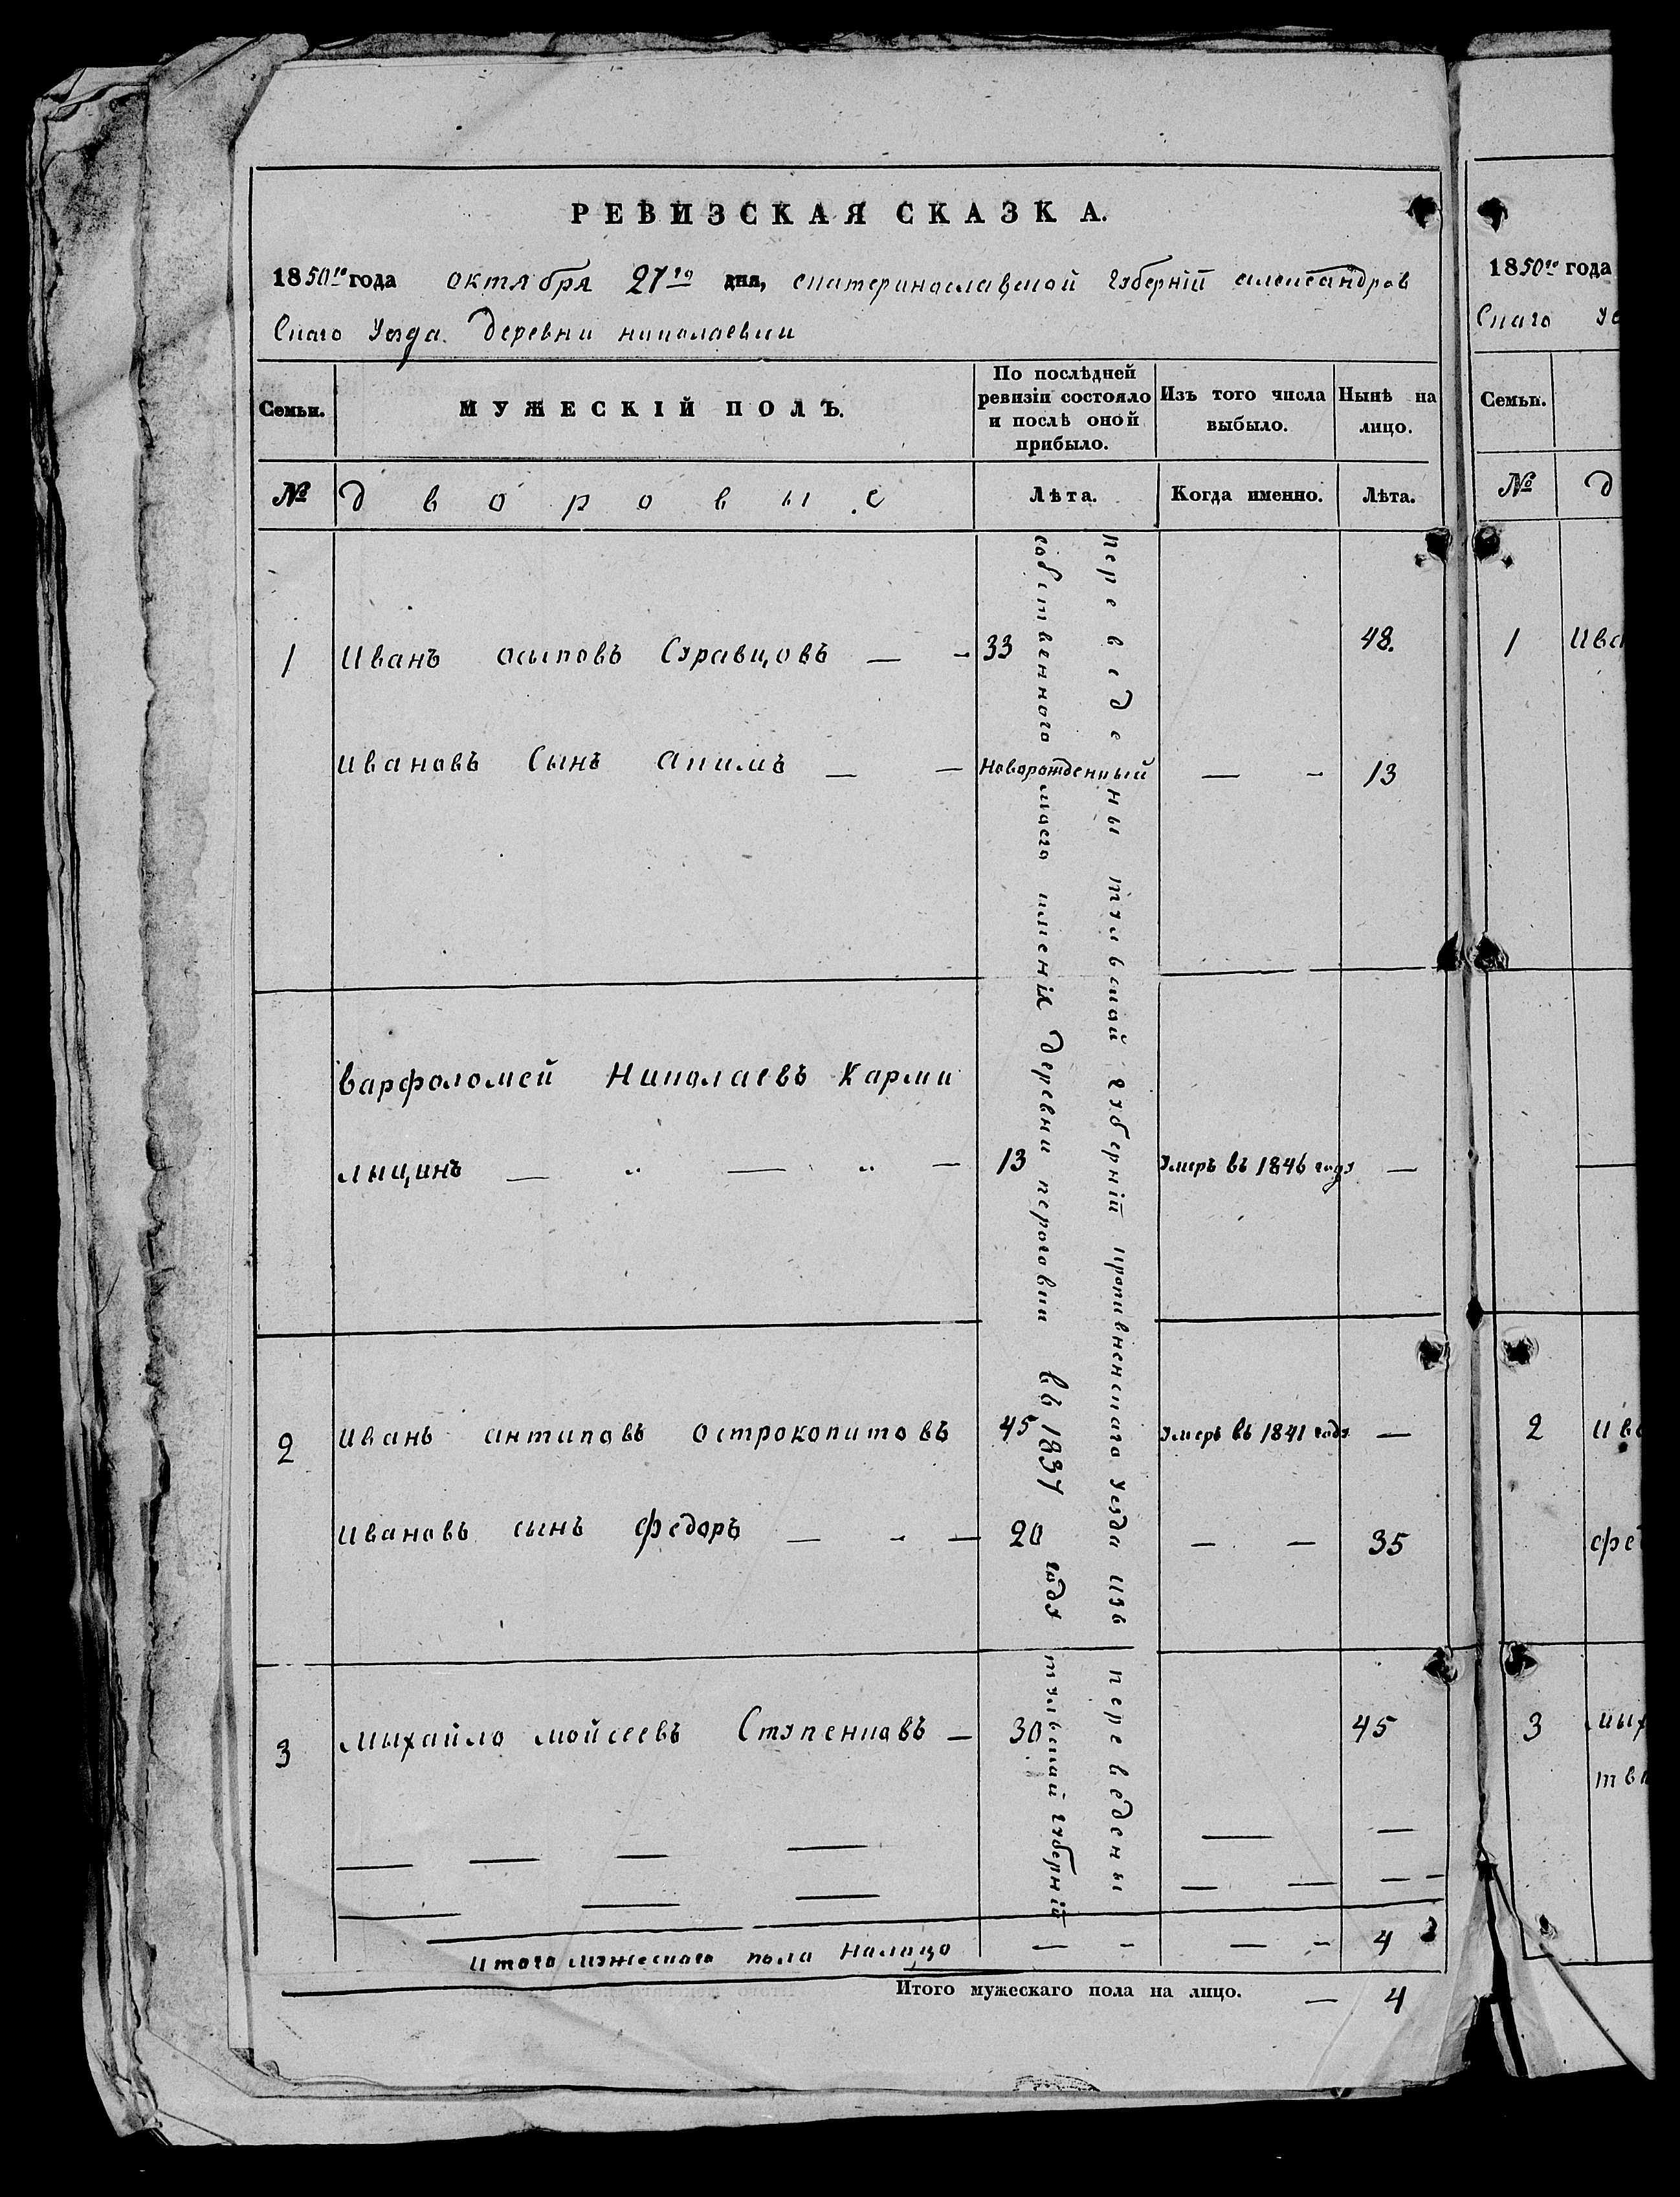 РЕВИЗСКАЯ СКАЗКА.
1850го года октября 27го дня, екатеринославской губерніи александров
скаго уезда деревни николаевки
Семьи.
МУЖЕСКІЙ ПОЛЪ.
По послѣдней ревизіи состояло и послѣ оной прибыло.
Изъ того числа выбыло.
Нынѣ на лицо.
№ дворовые Лѣта. Когда именно. Лѣта.
1 Иванъ осыповъ Суравцовъ — - 33 48.
ивановъ Сынъ акимъ — — Новорожденный — - 13
варфоломей Николаевъ Карми
лыцинъ — „ — „ — 13 умеръ въ 1846 году —
2 иванъ антиповъ острокопитовъ 45 умеръ въ 1841 году —
ивановъ сынъ федоръ — - — 20 — — 35
3 михайло мойсеевъ Ступенковъ — 30 45
переведены тулвской губерніи кропивненскаго уезда изъ
собственного моего именія деревни пероговки въ 1837 году
переведены
тульской губерніи
итого мужескаго пола Налицо — - — - 4
Итого мужескаго пола на лицо. — 4
1850го года
Скаго Уе
Семьи.
№ д
1 Ива
2 ива
фед
3 мих